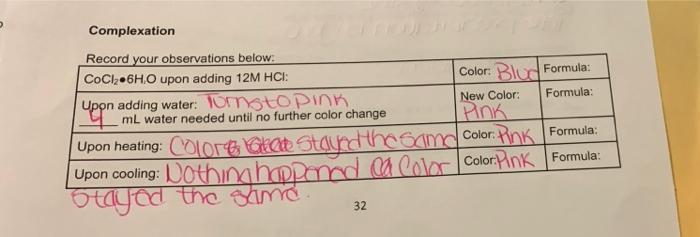 Complexation
Record your observations below:
CoCl₂•6H₂O upon adding 12M HCl: Color: Blue Formula:
Upon adding water: Turns to pink New Color: Formula:
4 mL water needed until no further color change Pink
Upon heating: Color stayed the same Color: Pink Formula:
Upon cooling: Nothing happened Color Color: Pink Formula:
stayed the same.
32